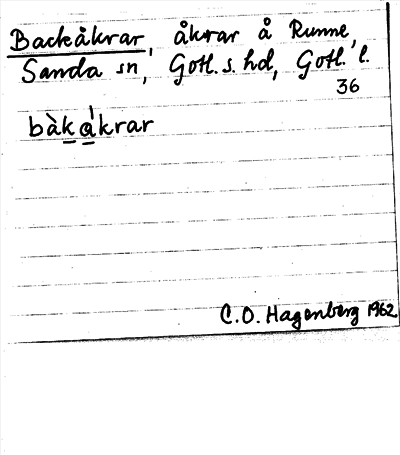 Backåkrar, åkrar å Runne,
Sanda sn, Gotl. s. hd, Gotl. l.
36
bàkàkrar
C. O. Hagenberg 1962